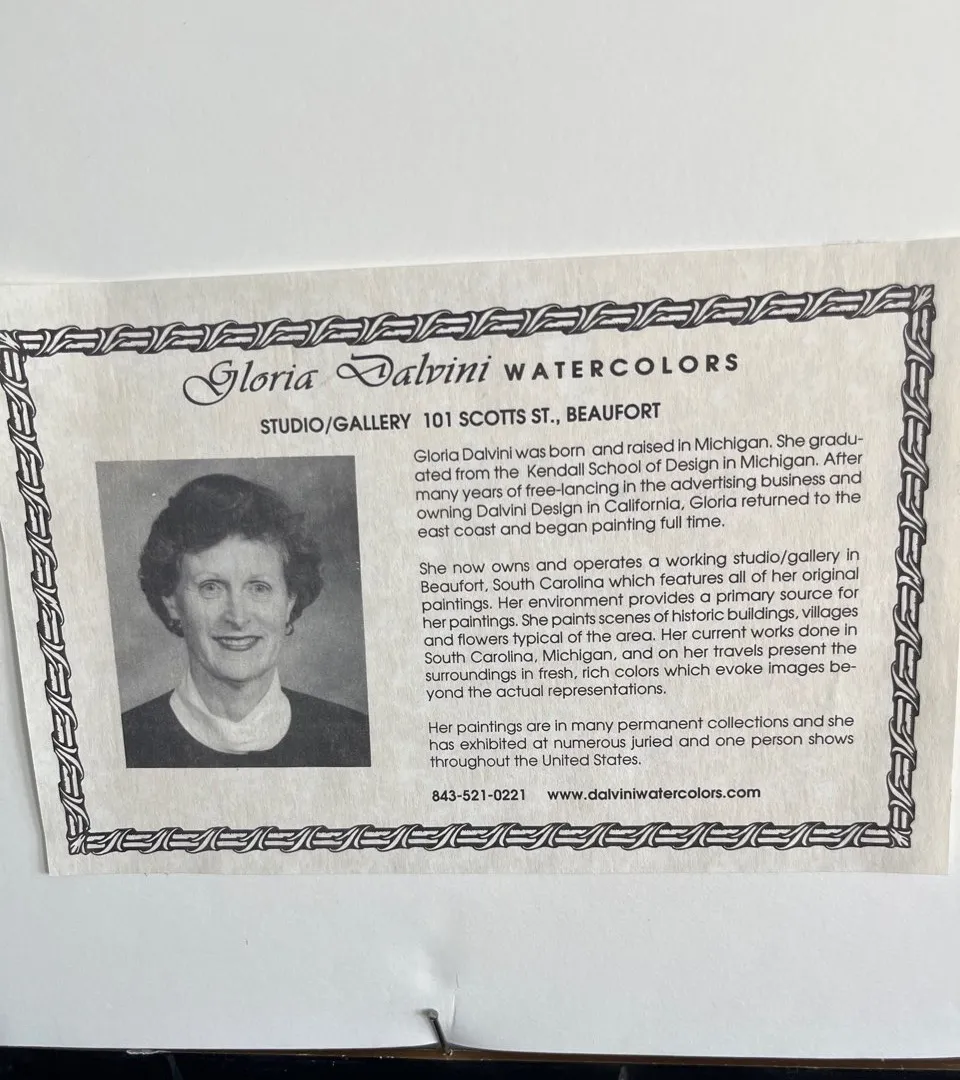 Gloria Dalvini WATERCOLORS
STUDIO/GALLERY 101 SCOTTS ST., BEAUFORT
Gloria Dalvini was born and raised in Michigan. She gradu-
ated from the Kendall School of Design in Michigan. After
many years of free-lancing in the advertising business and
owning Dalvini Design in California, Gloria returned to the
east coast and began painting full time.
She now owns and operates a working studio/gallery in
Beaufort, South Carolina which features all of her original
paintings. Her environment provides a primary source for
her paintings. She paints scenes of historic buildings, villages
and flowers typical of the area. Her current works done in
South Carolina, Michigan, and on her travels present the
surroundings in fresh, rich colors which evoke images be-
yond the actual representations.
Her paintings are in many permanent collections and she
has exhibited at numerous juried and one person shows
throughout the United States.
843-521-0221 www.dalviniwatercolors.com